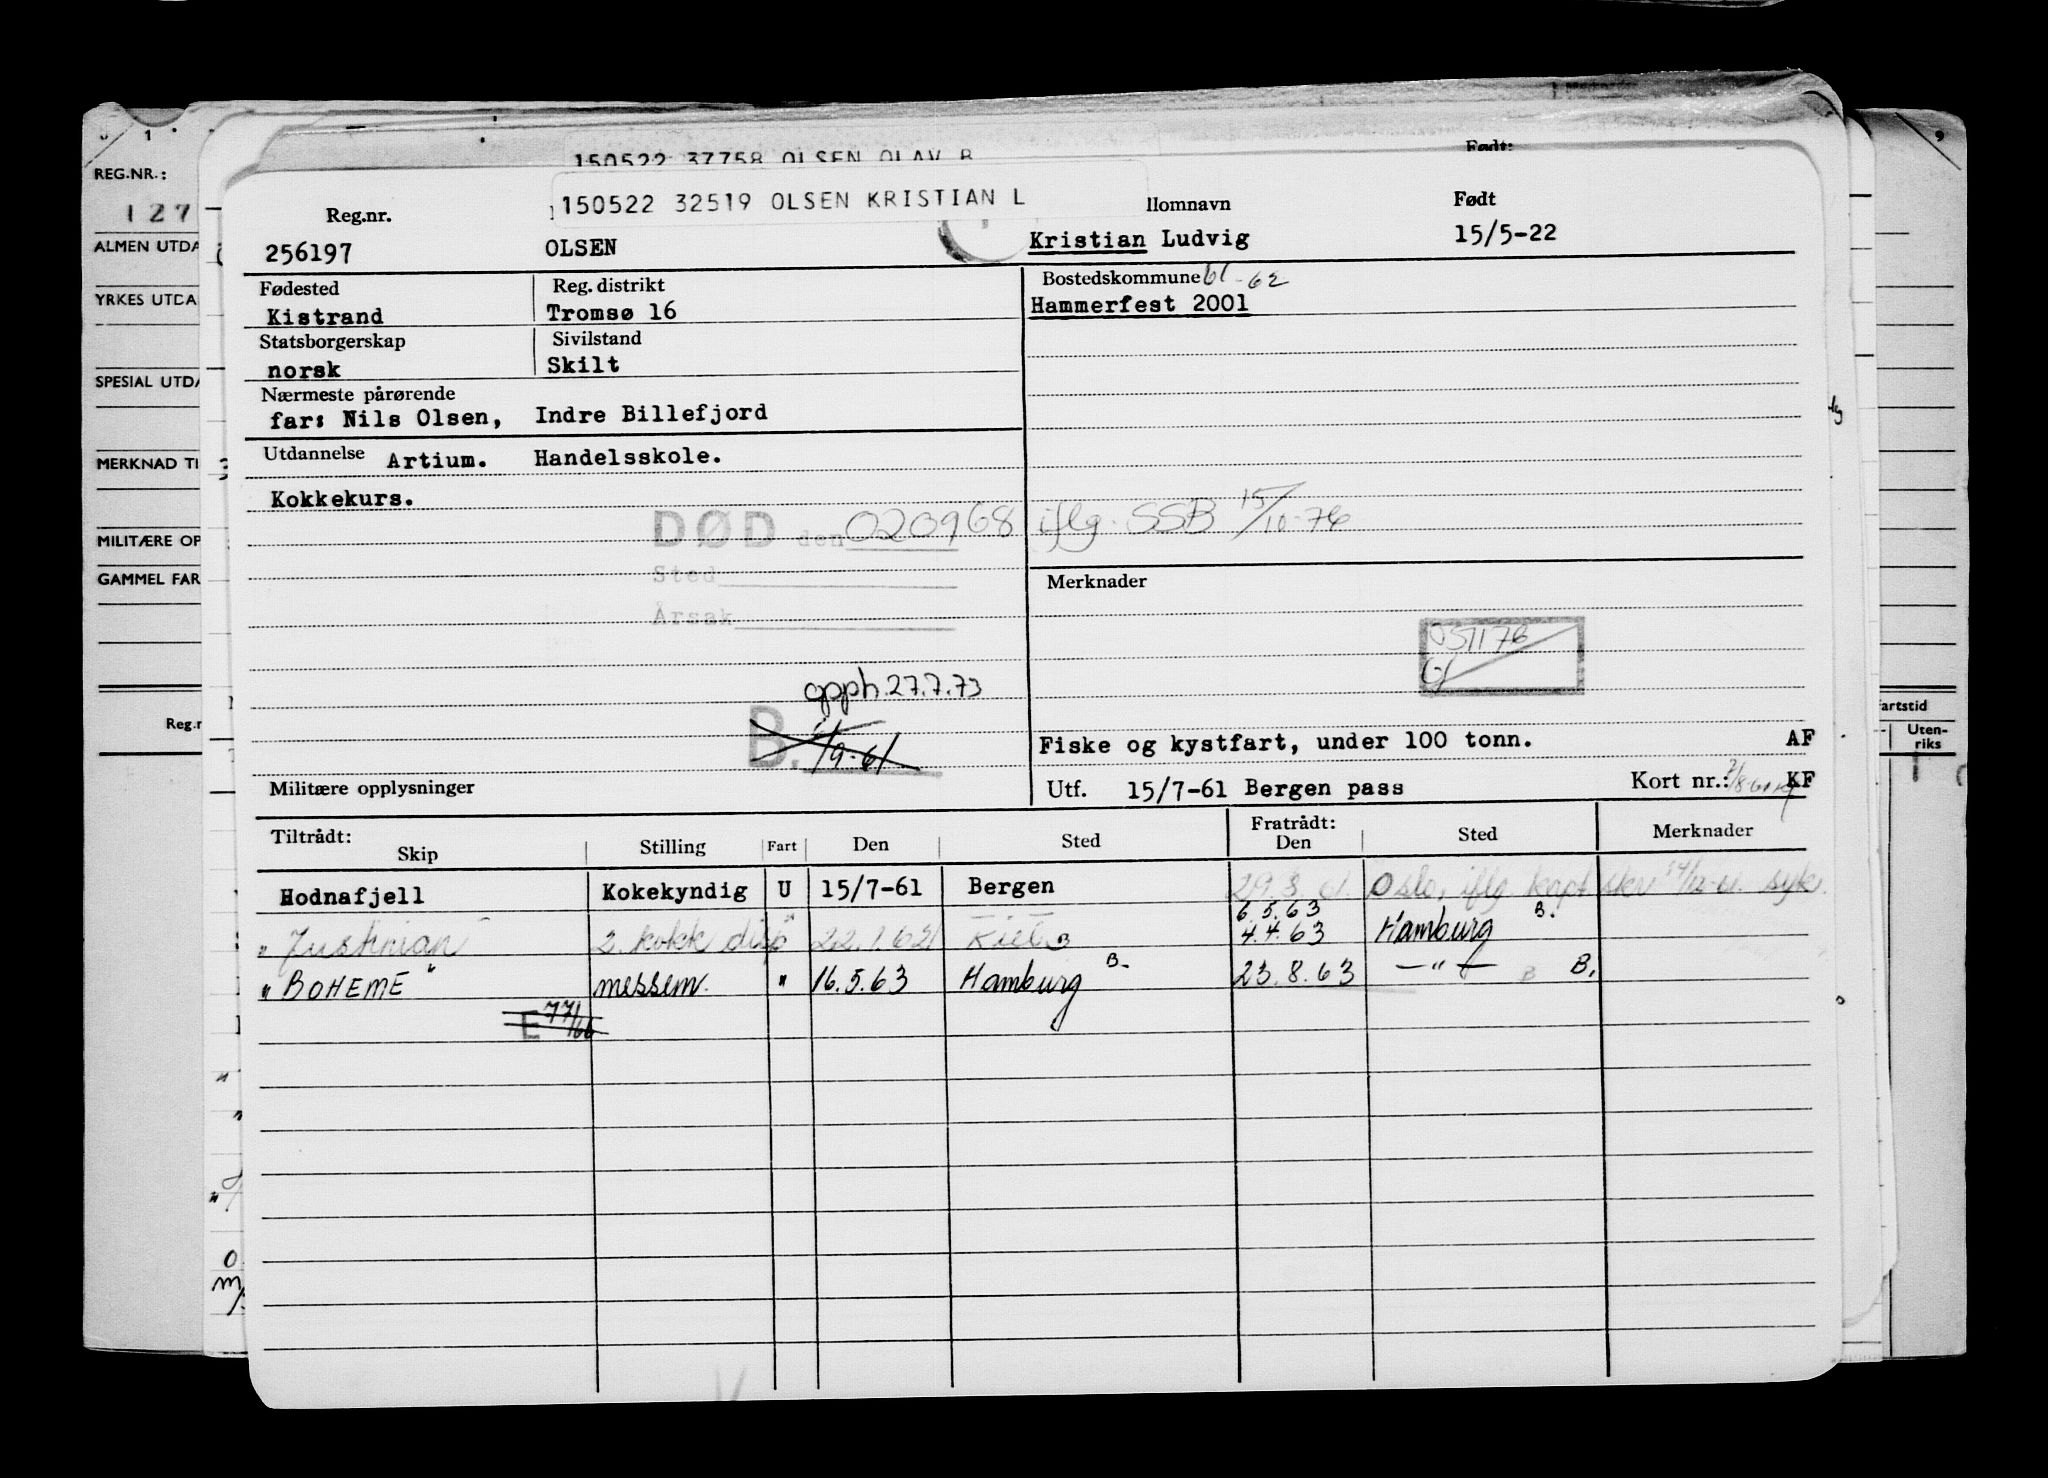 150522 37758 OLSEN OLAV B
Født:
150522 32519 OLSEN KRISTIAN L
REG.NR.:
127
ALMEN UTDA
YRKES UTDA
SPESIAL UTDA
MERKNAD TI
MILITÆRE OP
GAMMEL FAR
Reg.n
9
artstid
Uten-
riks
Reg.nr.
llomnavn
Født
256197 OLSEN Kristian Ludvig 15/5-22
Fødested Reg. distrikt Bostedskommune 61-62
Kistrand Tromsø 16 Hammerfest 2001
Statsborgerskap Sivilstand
norsk Skilt
Nærmeste pårørende
far: Nils Olsen, Indre Billefjord
Utdannelse Artium. Handelsskole.
Kokkekurs.
DØD den 020968 iflg. SSB 15/10-76
Sted
Årsak
Merknader
051176
opph. 27.7.73
B. 1/9-61
Fiske og kystfart, under 100 tonn. AF
Militære opplysninger
Utf. 15/7-61 Bergen pass Kort nr.: KF
Tiltrådt: Skip Stilling Fart Den Sted Fratrådt: Den Sted Merknader
Hodnafjell Kokekyndig U 15/7-61 Bergen 29.8.61. Oslo, iflg kapt. skr syk.
6.5.63 B.
" Justinian 2. kokk disp " 22.1.62 Kiel B 4.4.63 Hamburg
" BOHEME " messem. " 16.5.63 Hamburg B. 23.8.63 —"— B B.
E 77/66